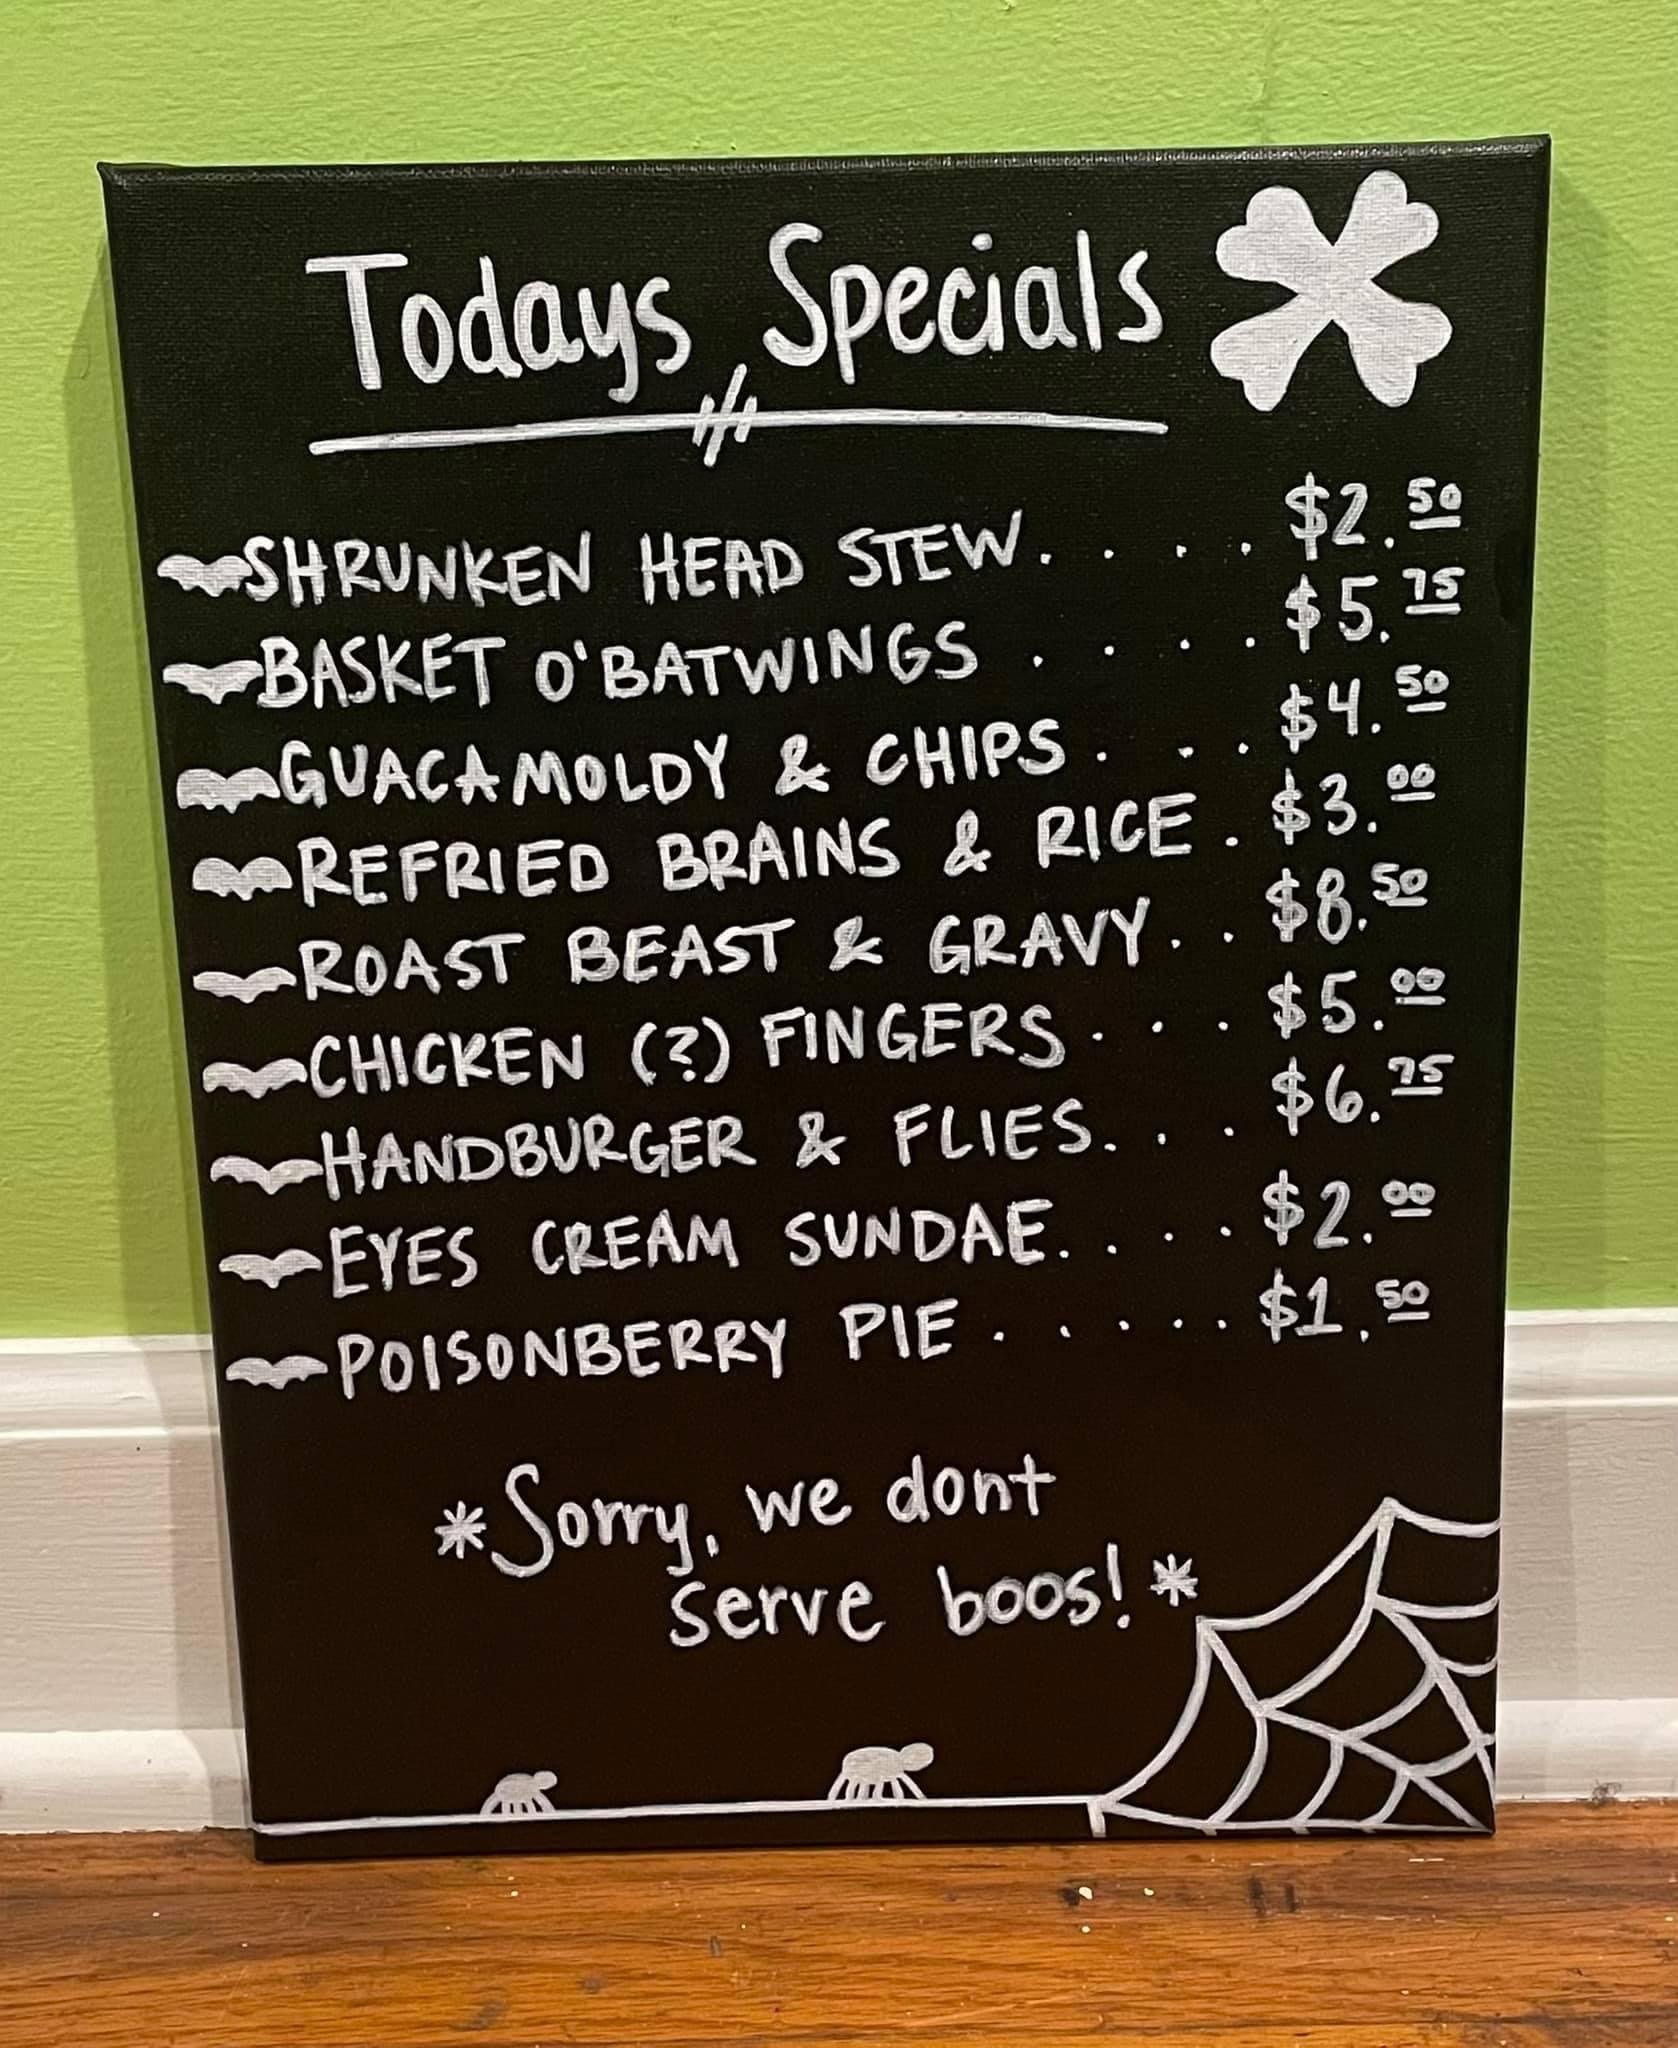 Todays Specials
SHRUNKEN HEAD STEW. . . . $2.50
BASKET O'BATWINGS . . . . $5.75
GUACAMOLDY & CHIPS . . . $4.50
REFRIED BRAINS & RICE . $3.00
ROAST BEAST & GRAVY . . $8.50
CHICKEN (?) FINGERS . . . $5.00
HANDBURGER & FLIES. . . $6.75
EYES CREAM SUNDAE. . . . $2.00
POISONBERRY PIE . . . . . $1.50
*Sorry, we dont
serve boos!*